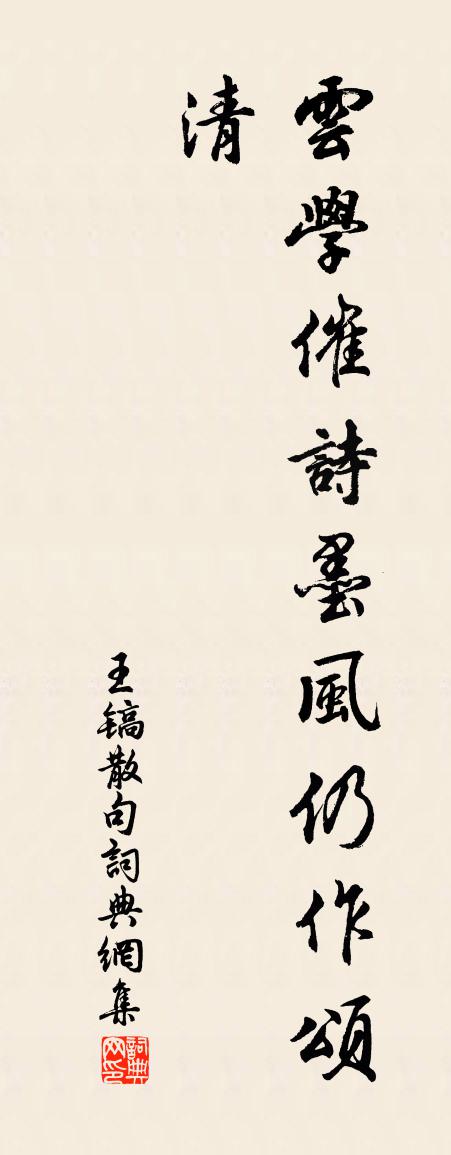 雲學催詩墨風仍作頌
清
王鎬散句詞典網集
詞典网印